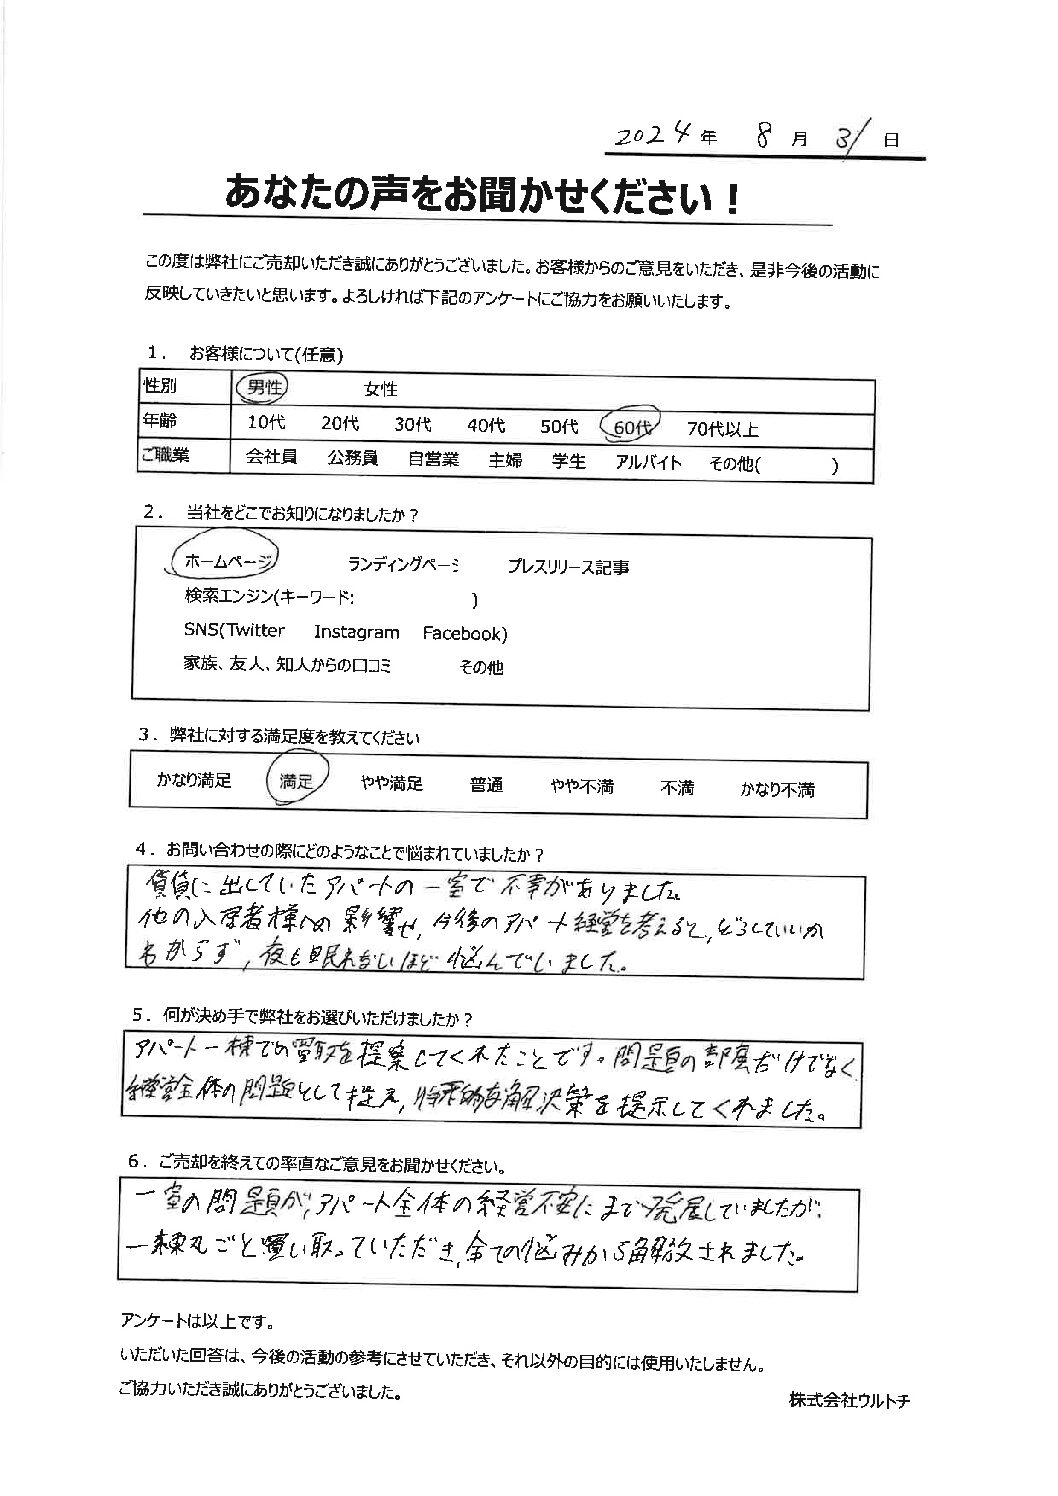 2024年 8月 31日
あなたの声をお聞かせください！
この度は弊社にご売却いただき誠にありがとうございました。お客様からのご意見をいただき、是非今後の活動に
反映していきたいと思います。よろしければ下記のアンケートにご協力をお願いいたします。
１． お客様について(任意)
性別 男性 女性
年齢 10代 20代 30代 40代 50代 60代 70代以上
ご職業 会社員 公務員 自営業 主婦 学生 アルバイト その他( )
２． 当社をどこでお知りになりましたか？
ホームページ ランディングページ プレスリリース記事
検索エンジン(キーワード: )
SNS(Twitter Instagram Facebook)
家族、友人、知人からの口コミ その他
３．弊社に対する満足度を教えてください
かなり満足 満足 やや満足 普通 やや不満 不満 かなり不満
４．お問い合わせの際にどのようなことで悩まれていましたか？
賃貸に出していたアパートの一室で不幸がありました。
他の入居者様への影響や、今後のアパート経営を考えると、どうしていいか
わからず、夜も眠れないほど悩んでいました。
５．何が決め手で弊社をお選びいただけましたか？
アパート一棟での買取を提案してくれたことです。問題の部屋だけでなく
経営全体の問題として捉え、現実的な解決策を提示してくれました。
６．ご売却を終えての率直なご意見をお聞かせください。
一室の問題が、アパート全体の経営不安にまで発展していましたが、
一棟丸ごと買い取っていただき、全ての悩みから解放されました。
アンケートは以上です。
いただいた回答は、今後の活動の参考にさせていただき、それ以外の目的には使用いたしません。
ご協力いただき誠にありがとうございました。
株式会社ウルトチ